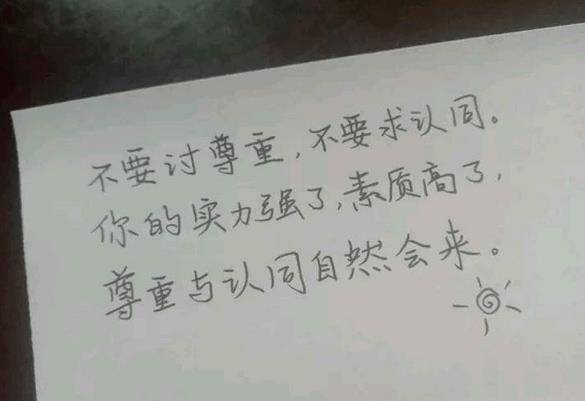 不要讨尊重，不要求认同。
你的实力强了，素质高了，
尊重与认同自然会来。